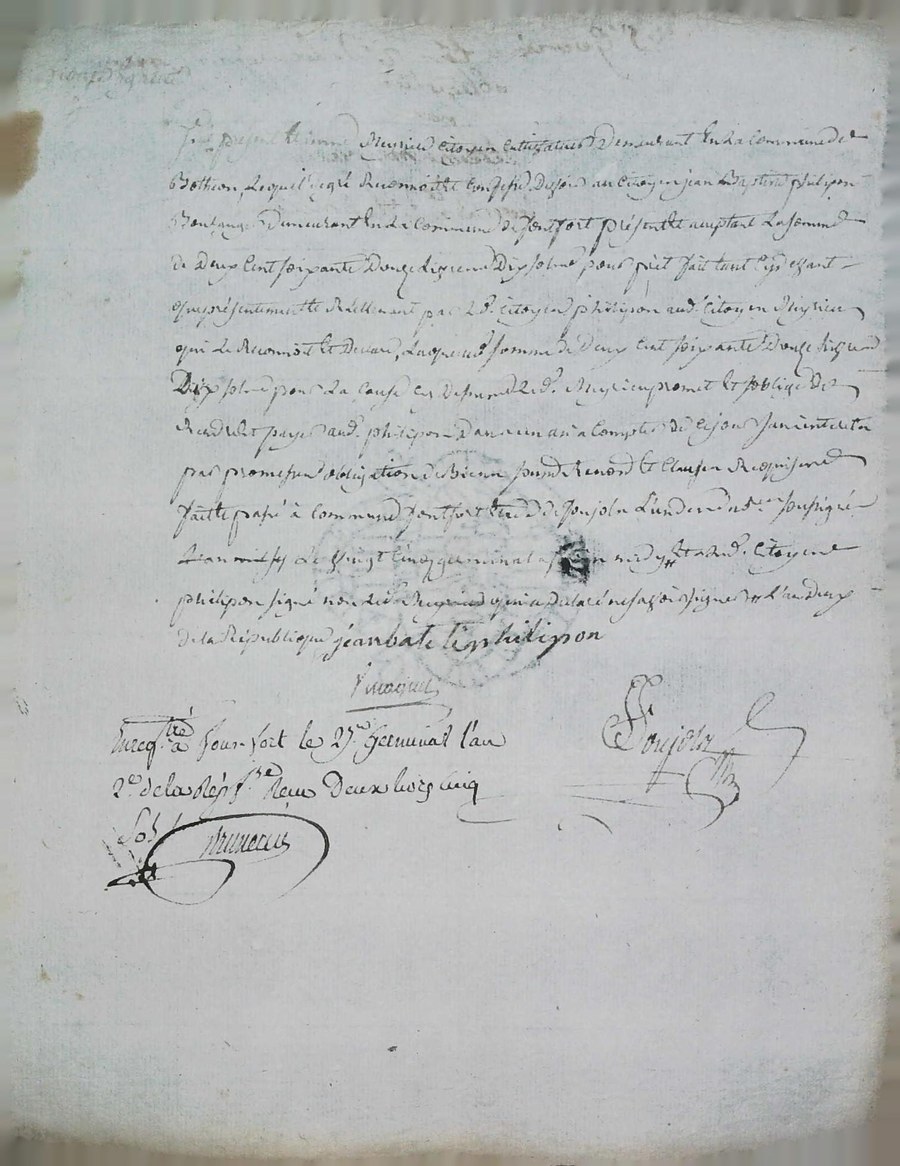 fut présent Etienne Meyrieu citoyen cultivateur Demeurant En La Commune de
Botheon, Lequel degré Reconnoit et Confesse Devoir au Citoyen jean Baptiste philipon
Boulanger Demeurant En La Commune de fontfort présent et acceptant La somme
de Deux Cent soixante Douze Livres Dix sols pour prêt fait tant cy devant
que présentement et Réellement par Led. Citoyen philipon aud. Citoyen Meyrieu
qui Le Reconnoit et Declare, Laquelle somme de Deux Cent soixante Douze Livres
Dix sols pour La Cause cy Dessus Led. Meyrieu promet et s'oblige de
Rendre et payer aud. philipon Dans un an a Compter de Ce jour sans interets
par promesse obligation de Biens et Clauses Requises
fait et passé à Commune fontfort Etude de Ponjoln L'un des nores soussigné
Le vingt Cinq germinal après midy led. Citoyen
philipon signé non Led. Meyrieu qui a Declaré ne savoir signer # L'an Deux
de la République jéan batètistè philipon
Enregtré à Fonfort le 27. Germinal l'an
2e de la Rép fse Reçu Deux livres cinq
Sols